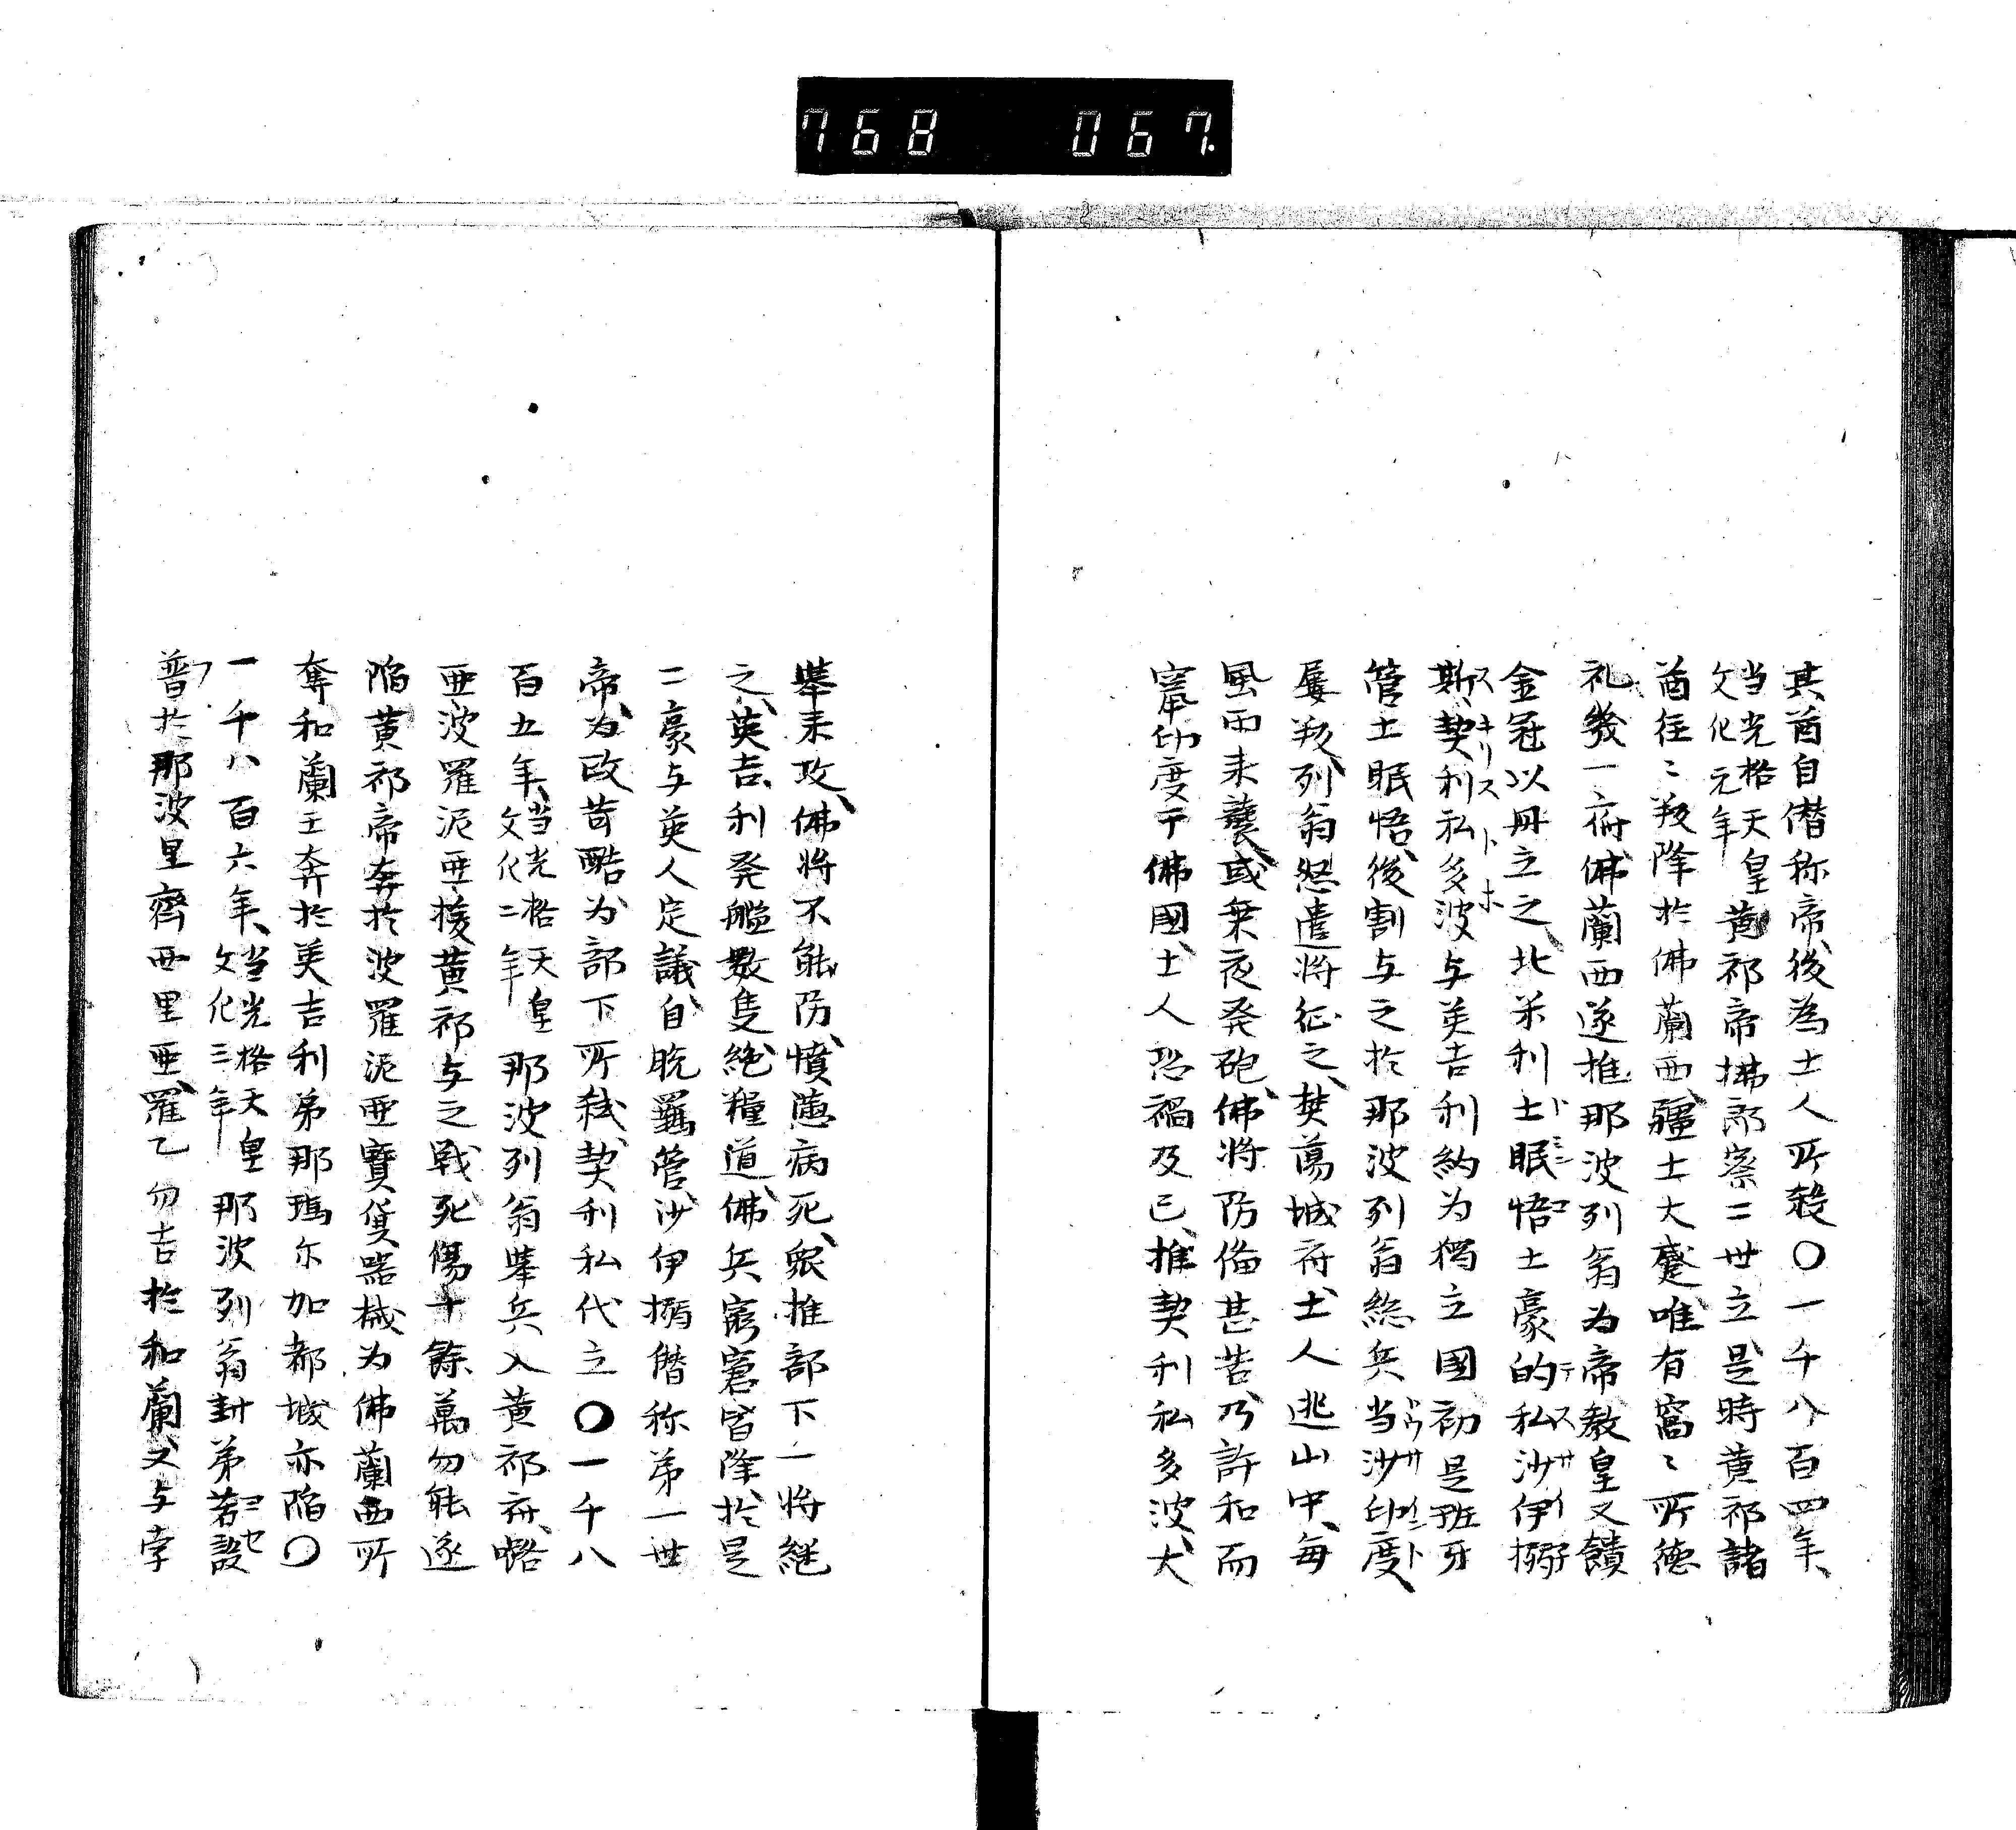 768 067.
其酋自僣称帝、後為士人所殺〇一千八百四年、
当光格天皇
文化元年
黄祁帝拂郎察二世立是時黄祁諸
酋往〻叛降於佛蘭西、疆土大蹙唯有窩〻所徳
礼幾一府、佛蘭西遂推那波列翁为帝教皇又饋
金冠以冊立之、北米利士眠悟士豪的私沙伊搦
ドミニコ
テスサイ
斯、契利私多波与英吉利約为獨立國初是班牙
スキリストホ
管土眠悟、後割与之於那波列翁総兵当沙印度、
トウサインド
屡叛、列翁怒遣将征之、焚蕩城府、士人逃山中、毎
風雨来襲、或乗夜発砲、佛将防俻甚苦、乃許和而
窜印度于佛國、士人恐禍及已、推契利私多波、大
挙来攻、佛将不能防、憤懣病死、衆推部下一将継
之、英吉利発艦數隻絶糧道、佛兵窮窘皆降、於是
二豪与英人定議、自脱羈管、沙伊搦僣称第一世
帝、为政苛酷为部下所弑、契利私代立〇一千八
百五年、
当光格天皇
文化二年
那波列翁挙兵入黄祁府、略
亜波羅泥亜援黄祁与之戦、死傷十餘萬勿能遂
陥黄祁帝奔於波羅泥亜寶貨器械为佛蘭西所
奪和蘭王奔於英吉利弟那瑪尓加都城亦陥〇
一千八百六年、
当光格天皇
文化三年
那波列翁封弟若設
ヨセ
普於那波里齊西里亜、羅乙勿吉於和蘭又与孛
フ